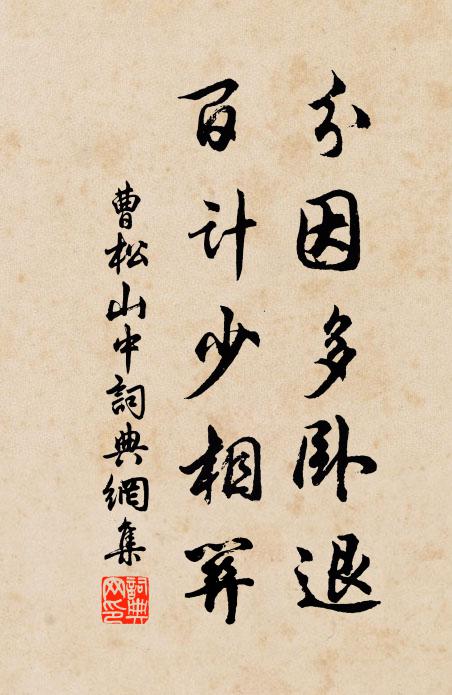 分因多卧退
百計少相關
曹松山中詞典網集
詞典
网印